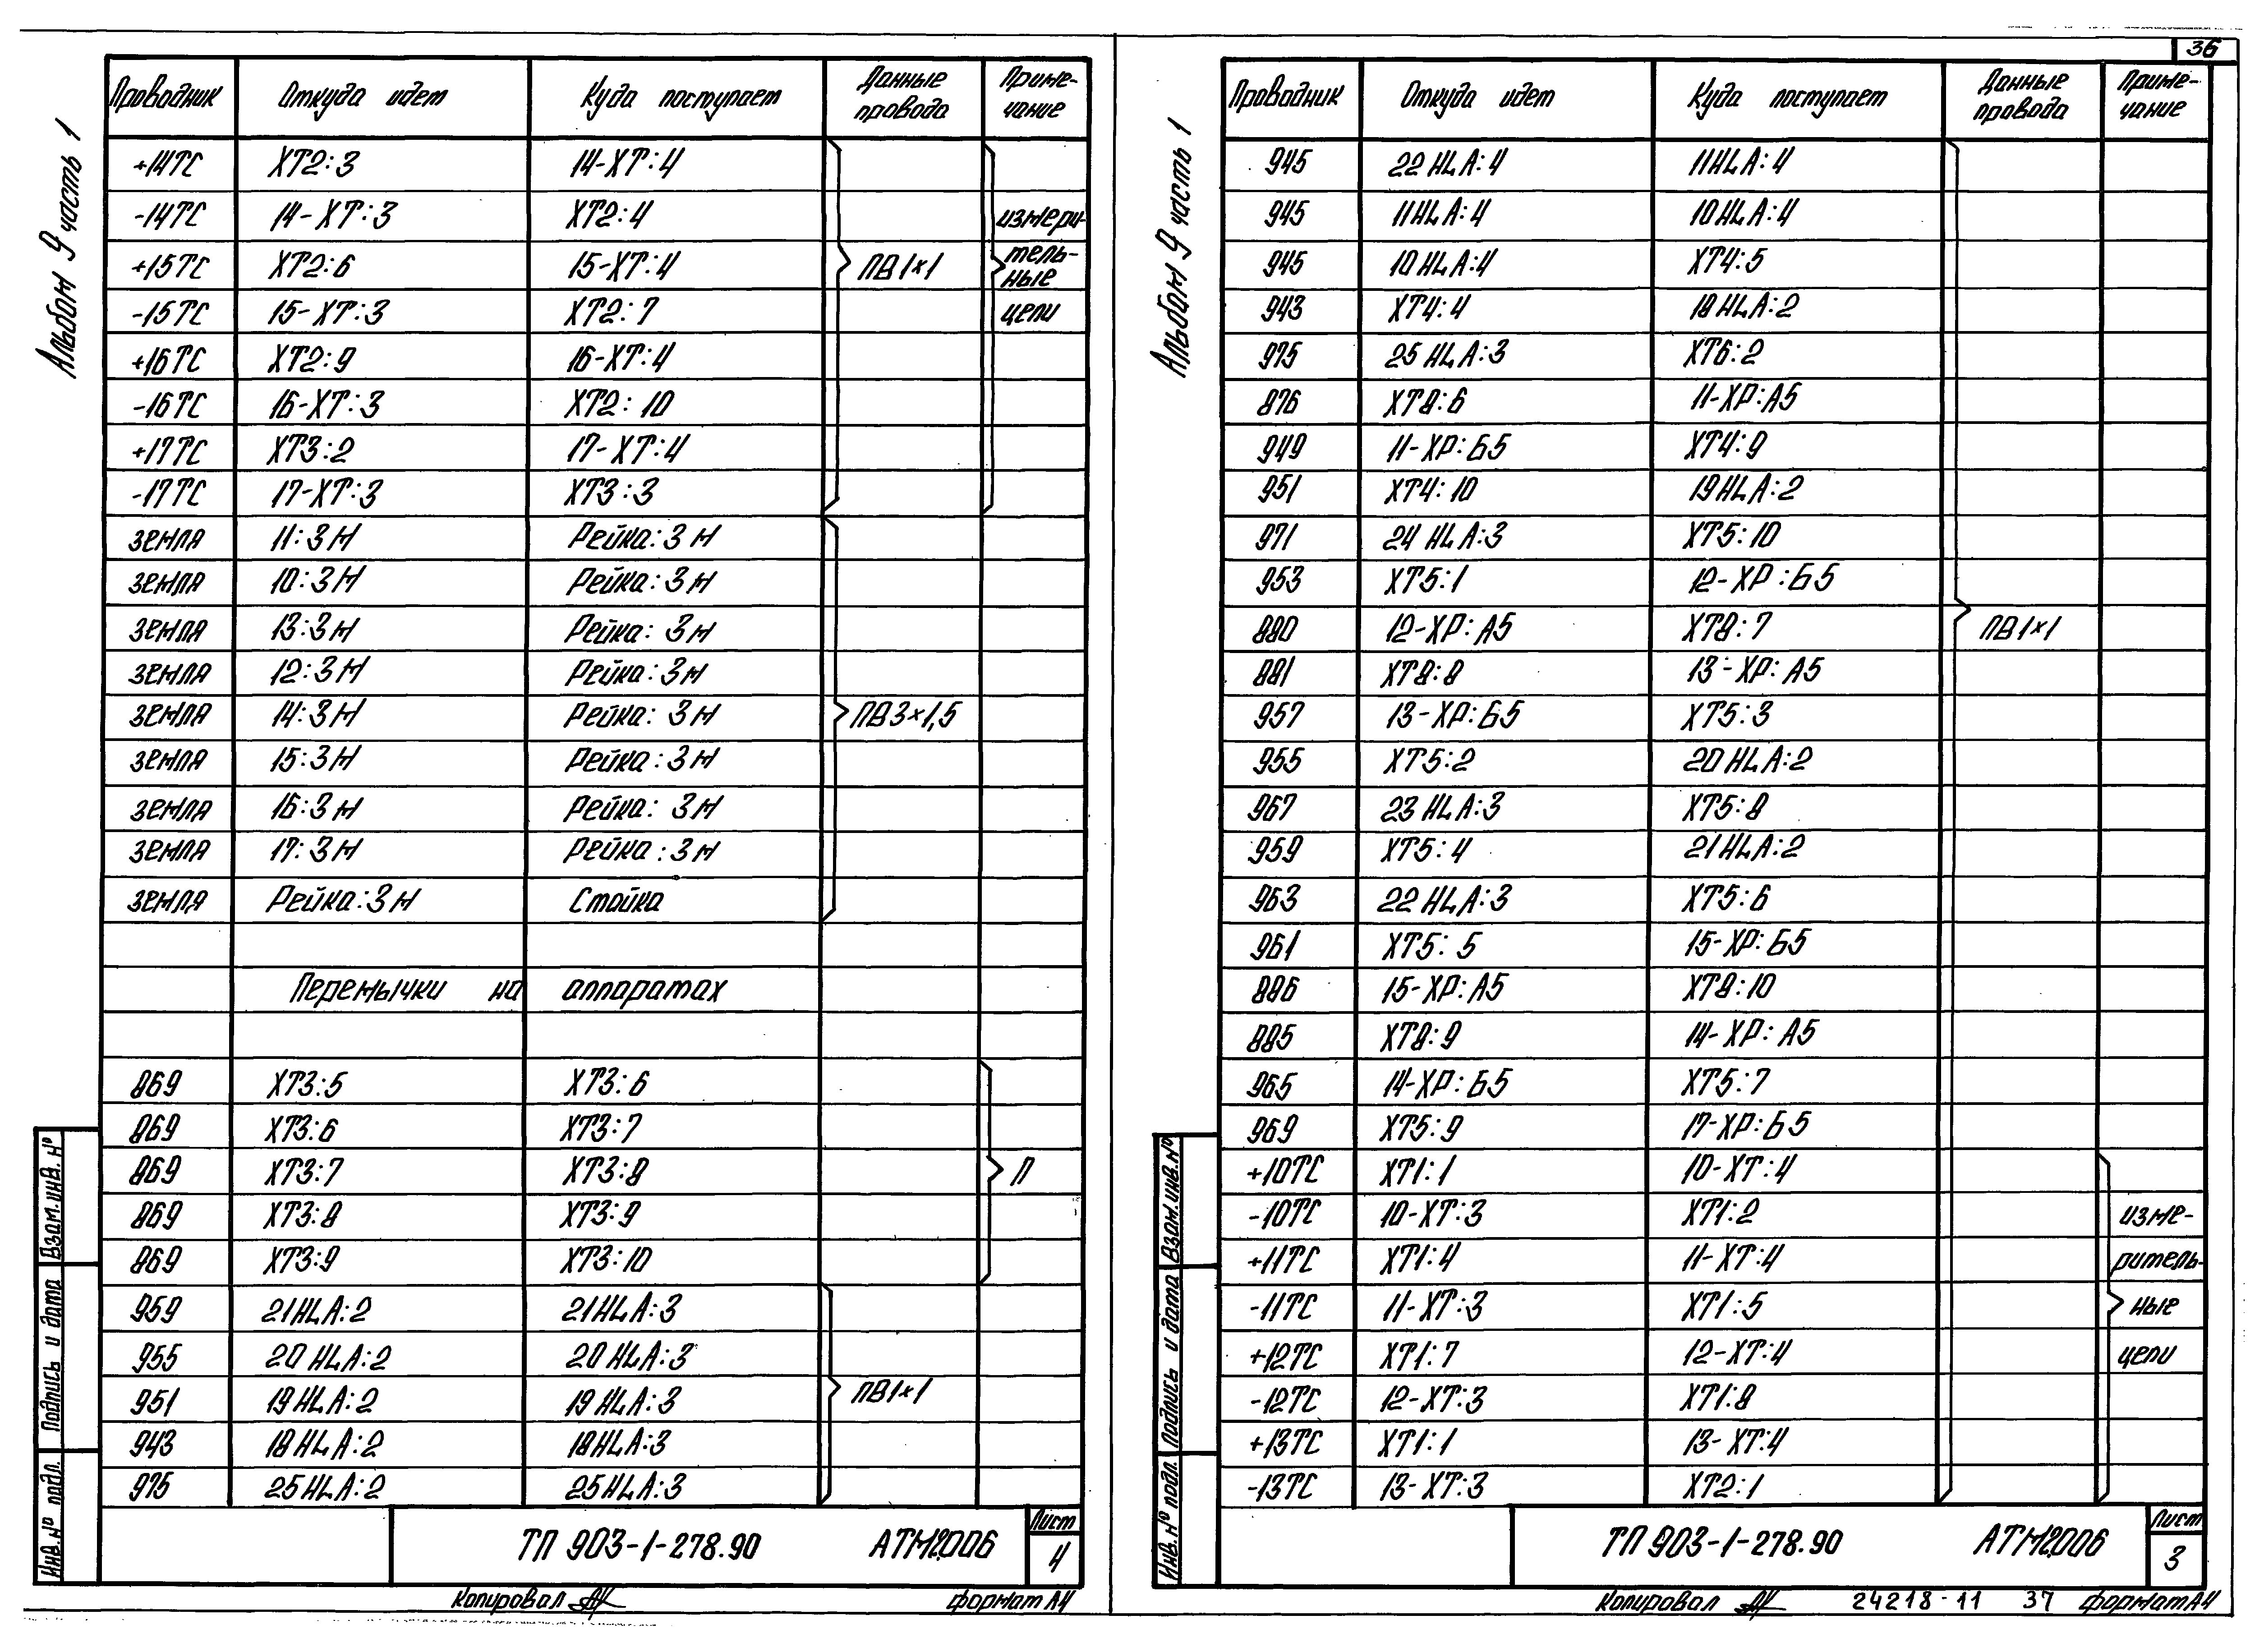 Альбом 9 часть 1
Проводник Откуда идет Куда поступает Данные провода Приме-чание
+14ТС ХТ2:3 14-ХТ:4
-14ТС 14-ХТ:3 ХТ2:4 измери-
+15ТС ХТ2:6 15-ХТ:4 ПВ1×1 тель-ные
-15ТС 15-ХТ:3 ХТ2:7 цепи
+16ТС ХТ2:9 16-ХТ:4
-16ТС 16-ХТ:3 ХТ2:10
+17ТС ХТ3:2 17-ХТ:4
-17ТС 17-ХТ:3 ХТ3:3
земля 11:Зм Рейка:Зм
земля 10:Зм Рейка:Зм
земля 13:Зм Рейка:Зм
земля 12:Зм Рейка:Зм
земля 14:Зм Рейка:Зм ПВ3×1,5
земля 15:Зм Рейка:Зм
земля 16:Зм Рейка:Зм
земля 17:Зм Рейка:Зм
земля Рейка:Зм Стойка
Перемычки на аппаратах
869 ХТ3:5 ХТ3:6
869 ХТ3:6 ХТ3:7
869 ХТ3:7 ХТ3:8 П
869 ХТ3:8 ХТ3:9
869 ХТ3:9 ХТ3:10
959 21HLA:2 21HLA:3
955 20HLA:2 20HLA:3
951 19HLA:2 19HLA:3 ПВ1×1
943 18HLA:2 18HLA:3
975 25HLA:2 25HLA:3
Инв. № подл. Подпись и дата Взам.инв. №
ТП 903-1-278.90 АТМ2.006 Лист 4
Копировал формат А4
36
Альбом 9 часть 1
Проводник Откуда идет Куда поступает Данные провода Приме-чание
945 22HLA:4 11HLA:4
945 11HLA:4 10HLA:4
945 10HLA:4 ХТ4:5
943 ХТ4:4 18HLA:2
975 25HLA:3 ХТ6:2
876 ХТ8:6 11-ХР:А5
949 11-ХР:Б5 ХТ4:9
951 ХТ4:10 19HLA:2
971 24HLA:3 ХТ5:10
953 ХТ5:1 12-ХР:Б5
880 12-ХР:А5 ХТ8:7 ПВ1×1
881 ХТ8:8 13-ХР:А5
957 13-ХР:Б5 ХТ5:3
955 ХТ5:2 20HLA:2
967 23HLA:3 ХТ5:8
959 ХТ5:4 21HLA:2
963 22HLA:3 ХТ5:6
961 ХТ5:5 15-ХР:Б5
886 15-ХР:А5 ХТ8:10
885 ХТ8:9 14-ХР:А5
965 14-ХР:Б5 ХТ5:7
969 ХТ5:9 17-ХР:Б5
+10ТС ХТ1:1 10-ХТ:4
-10ТС 10-ХТ:3 ХТ1:2 изме-
+11ТС ХТ1:4 11-ХТ:4 ритель-
-11ТС 11-ХТ:3 ХТ1:5 ные
+12ТС ХТ1:7 12-ХТ:4 цепи
-12ТС 12-ХТ:3 ХТ1:8
+13ТС ХТ1:1 13-ХТ:4
-13ТС 13-ХТ:3 ХТ2:1
Инв. № подл. Подпись и дата Взам.инв.№
ТП 903-1-278.90 АТМ2.006 Лист 3
Копировал 24218-11 37 формат А4